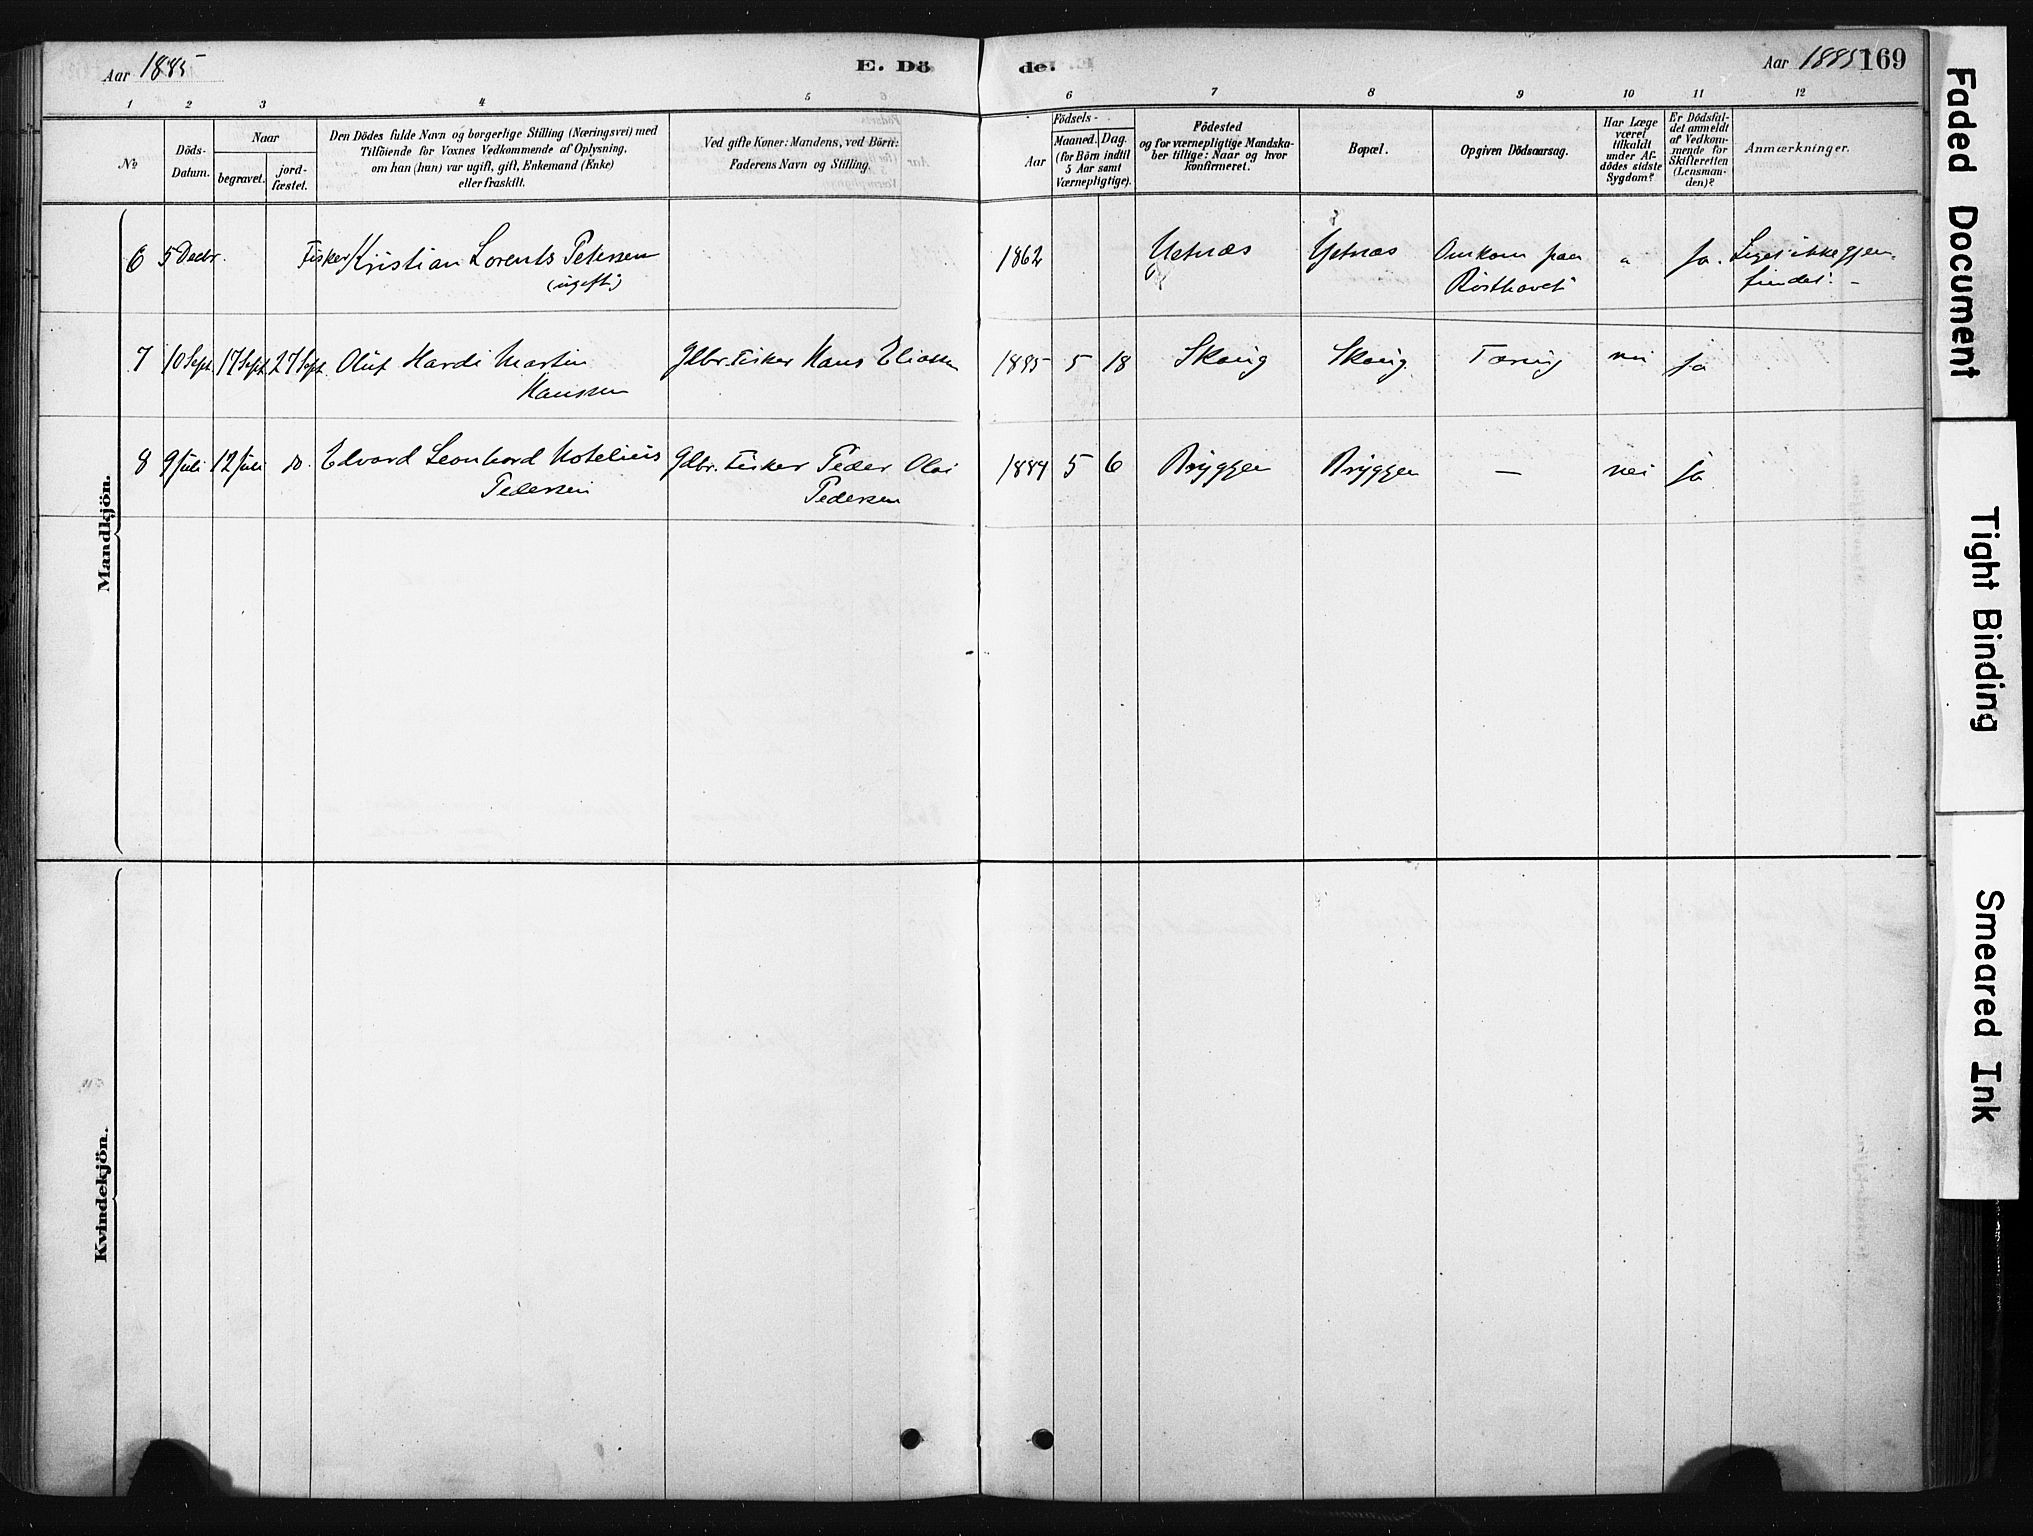 Aar 1885
E. Döde.
Aar 1885 169
1 2 3 4 5 6 7 8 9 10 11 12
No
Döds-
Datum.
Naar
begravet.
jord-
fæstet.
Den Dödes fulde Navn og borgerlige Stilling (Næringsvei) med
Tilföiende for Voxnes Vedkommende af Oplysning,
om han (hun) var ugift, gift, Enkemand (Enke)
eller fraskilt.
Ved gifte Koner: Mandens, ved Börn:
Faderens Navn og Stilling.
Födsels-
Aar
Maaned. Dag.
(for Börn indtil
5 Aar samt
Værnepligtige).
Födested
og for værnepligtige Mandska-
ber tillige: Naar og hvor
konfirmeret.
Bopæl.
Opgiven Dödsaarsag.
Har Læge
været
tilkaldt
under Af-
dödes sidste
Sygdom?
Er Dödsfal-
det anmeldt
af Vedkom-
mende for
Skifteretten
(Lensman-
den)?
Anmærkninger.
Mandkjön.
6 5 Decbr. Fisker Kristian Lorents Petersen 1862 Omkom paa " Ja. Liget ikke gjen-
(ugift) Rösthavet findet. -
7 10 Sept. 17 Sept. 27 Sept. Oluf Hardi Martin Gdbr. Fisker Hans Eliassen 1885 5 18 Skaug Skaug. Tæring nei ja
Hanssen
8 9 Juli 12 Juli do. Edvard Leonhard Gdbr. Fisker Peder Olai 1884 5 6 Bryggen Bryggen — nei ja
Pedersen Pedersen
Kvindekjön.
Faded Document
Tight Binding
Smeared Ink